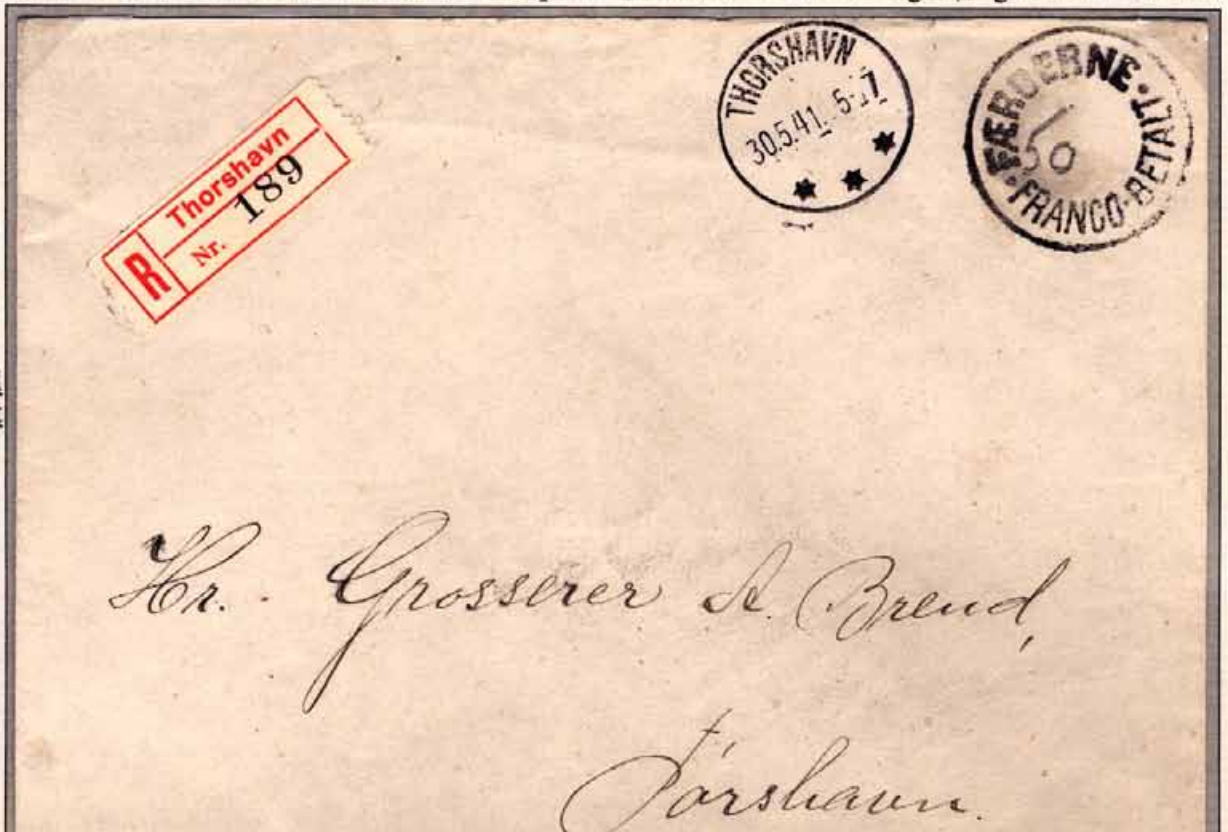 Thorshavn
R Nr. 189
THORSHAVN
30.5.41. 5-17
FÆRØERNE · FRANCO · BETALT ·
50
Hr. Grosserer A. Brend,
Tórshavn.